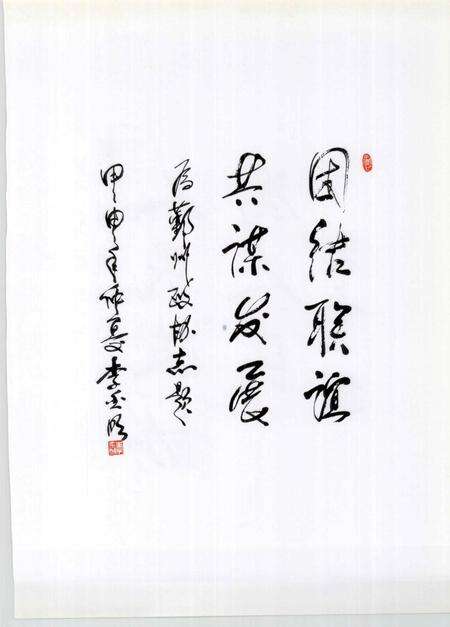 团结联谊
共谋发展
为鄞州政协志题
甲申年仲夏李